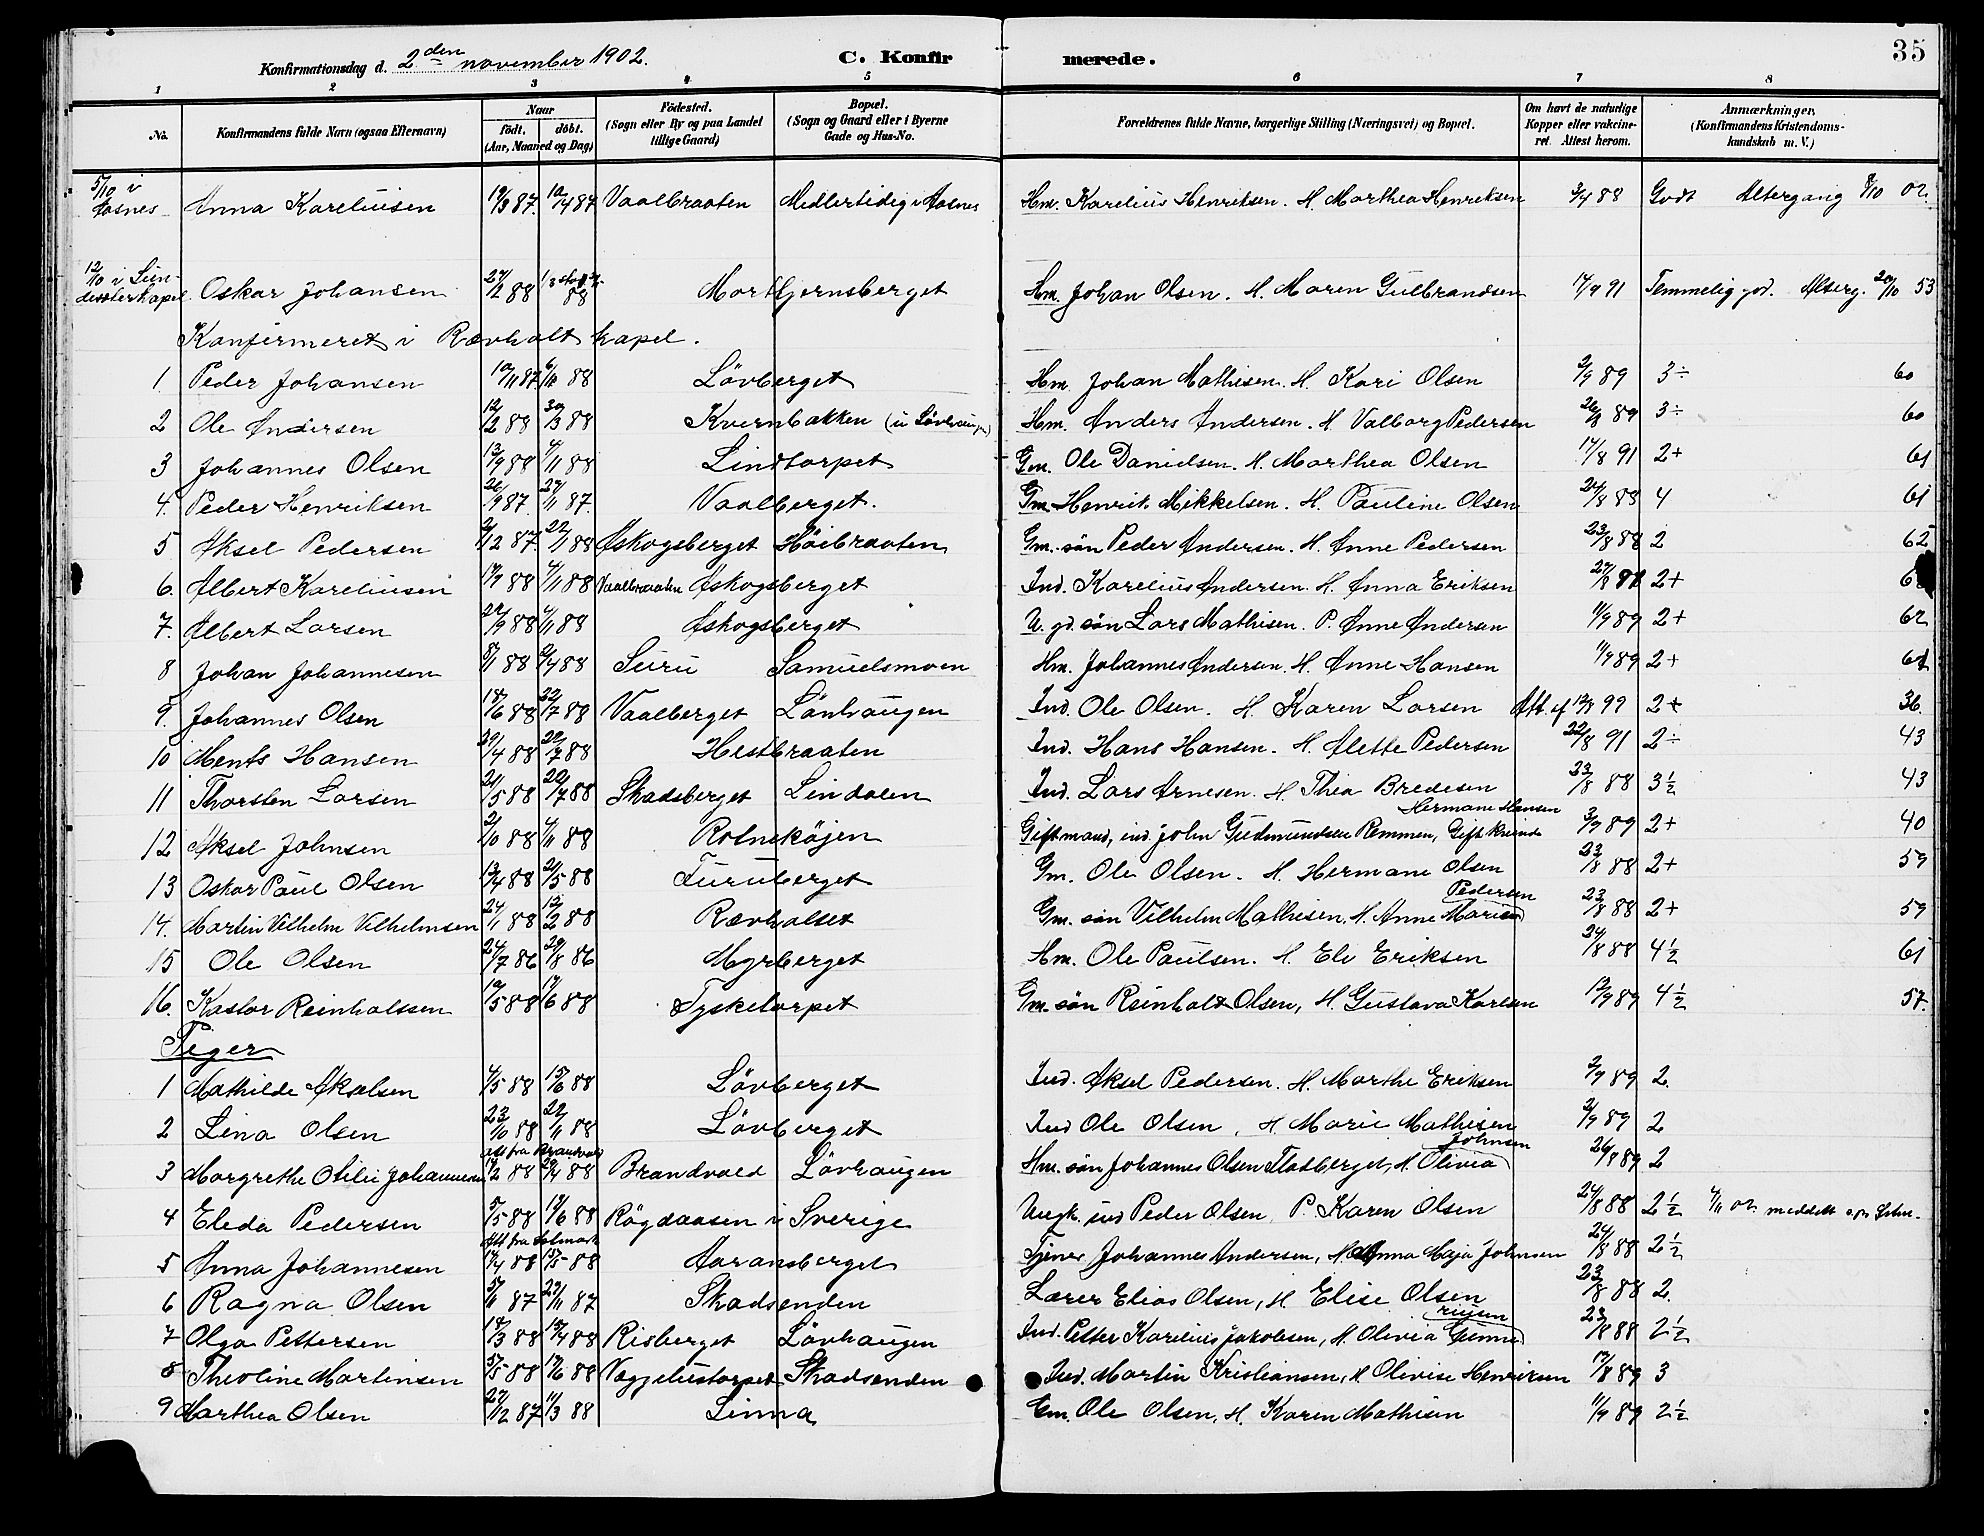 35
Konfirmationsdag d. 2den november 1902. C. Konfirmerede.
1 2 3 4 5 6 7 8
No. Konfirmandens fulde Navn (ogsaa Efternavn) Naar födt. döbt. (Aar, Maaned og Dag) Födested. (Sogn eller By og paa Landet tillige Gaard) Bopæl. (Sogn og Gaard eller i Byerne Gade og Hus-No. Forældrenes fulde Navne, borgerlige Stilling (Næringsvei) og Bopæl. Om havt de naturlige Kopper eller vakcineret. Attest herom. Anmærkninger, (Konfirmandens Kristendomskundskab m. V.)
5/10 i Aasnes Anna Kareliusen 19/3 87. 10/4 87 Vaalbraaten Midlertidig i Aasnes Hm. Karelius Henriksen. H. Marthea Henriksen 3/4 88 Godt Altergang 8/10 02.
12/10 i kapel Oskar Johansen 27/2 88 Mortjernsberget Hm. Johan Olsen. H. Maren Gulbrandsen 17/9 91 Temmelig god. Alterg. 20/10 53
Konfirmeret i Rævholt kapel.
1 Peder Johansen 10/11 87. 6/12 88 Lövberget Hm. Johan Mathisen. H. Kari Olsen 2/9 89 3÷ 60
2 Ole Andersen 12/2 88 30/3 88 Kvernbakken Hm. Anders Andersen. H. Valborg Pedersen 26/8 89 3÷ 60
3 Johannes Olsen 13/9 88 4/11 88 Lindtorpet Gm. Ole Danielsen. H. Marthea Olsen 17/8 91 2+ 61
4. Peder Henriksen 26/9 87. 27/11 87. Vaalberget. Gm. Henrik Mikkelsen. H. Pauline Olsen 24/8 88 4 61
5 Aksel Pedersen 2/12 87. 22/1 88 Askogsberget Höibraaten Gm. sön Peder Andersen. H. Anne Pedersen 23/8 88 2 62
6. Albert Kareliusen 17/9 88 4/11 88 Vaalbraaten Askogsberget Ind. Karelius Andersen. H. Anna Eriksen 27/8 2+
7. Albert Larsen 29/9 88 4/11 88 Askogsberget U. gd. sön Lars Mathisen. P. Anne Andersen 11/9 89 2+ 62
8 Johan Johannesen 8/1 88 2/4 88 Suru Samuelsmoen Hm. Johannes Andersen. H. Anne Hansen 11/9 89 2+
9. Johannes Olsen 18/6 88 22/7 88 Vaalberget Lönhaugen Ind. Ole Olsen. H. Karen Larsen Att. af 12/9 99 2+ 36.
10 Ments Hansen 29/4 88 22/7 88 Hestbraaten Ind. Hans Hansen. H. Alette Pedersen 22/8 91 2÷ 43
11 Thorsten Larsen 21/5 88 22/7 88 Skadsberget Lindalen Ind. Lars Arnesen. H. Thea Bredesen 23/8 88 3½ 43
12 Aksel Johnsen 2/10 88 4/11 88 Rotneköjen Giftmand, ind. John Gudmundsen Remmen, Gift kvinde Hermane Hansen 3/9 89 2+ 40
13 Oskar Paul Olsen 13/4 88 21/5 88 Furuberget Gm. Ole Olsen. H. Hermane Olsen 23/8 88 2+ 59
14. Martin Vilhelm Vilhelmsen 24/1 88 12/2 88 Rævholset Gm. sön Vilhelm Mathisen. H. Anne Marie Pedersen 23/8 88 2+ 59
15 Ole Olsen 24/7 86 29/8 86 Myrberget Hm. Ole Paulsen. H. Eli Eriksen 24/8 88 4½ 61
16. Kastor Reinholtsen 10/5 88 17/6 88 Tysketorpet Gm. sön Reinholt Olsen, H. Gustava Karlsen 12/9 89 4½ 57.
Piger
1 Mathilde Akselsen 4/5 88 15/6 88 Lövberget Ind. Aksel Pedersen. H. Marthe Eriksen 2/9 89 2.
2 Lina Olsen 23/10 88 22/11 88 Lövberget Ind Ole Olsen, H. Marie Mathisen 2/9 89 2
Att fra Brandvold
3 Margrethe Otilie Johannesen 14/2 88 29/4 88 Brandvold Lövhaugen Hm. sön Johannes Olsen Stadberget, H. Olivia Johnsen 26/8 89 2
4 Eleda Pedersen 5/5 88 19/6 88 Rögdaasen i Sverige Ungk. ind Peder Olsen, P. Karen Olsen 24/8 88 2½ 4/11 02 meddelt
Att fra
5 Anna Johannesen 17/4 88 15/5 88 Aaransberget Tjener Johannes Andersen, H. Anna Maja Johnsen 24/8 88 2½
6 Ragna Olsen 5/11 87 29/11 87 Skadsenden Lærer Elias Olsen, H. Elise Olsen 23/8 88 2.
7 Olga Pettersen 18/3 88 15/4 88 Risberget Lövhaugen Ind. Petter Karelius Jakobsen, H. Olivia Gunneriusen 23/8 88 2½
8 Theoline Martinsen 5/5 88 17/6 88 Skadsenden Ind. Martin Kristiansen, H. Olivise Henriksen 17/8 89 3
9 Marthea Olsen 27/12 87 11/3 88 Linna Gm. Ole Olsen, H. Karen Mathisen 11/9 89 2½